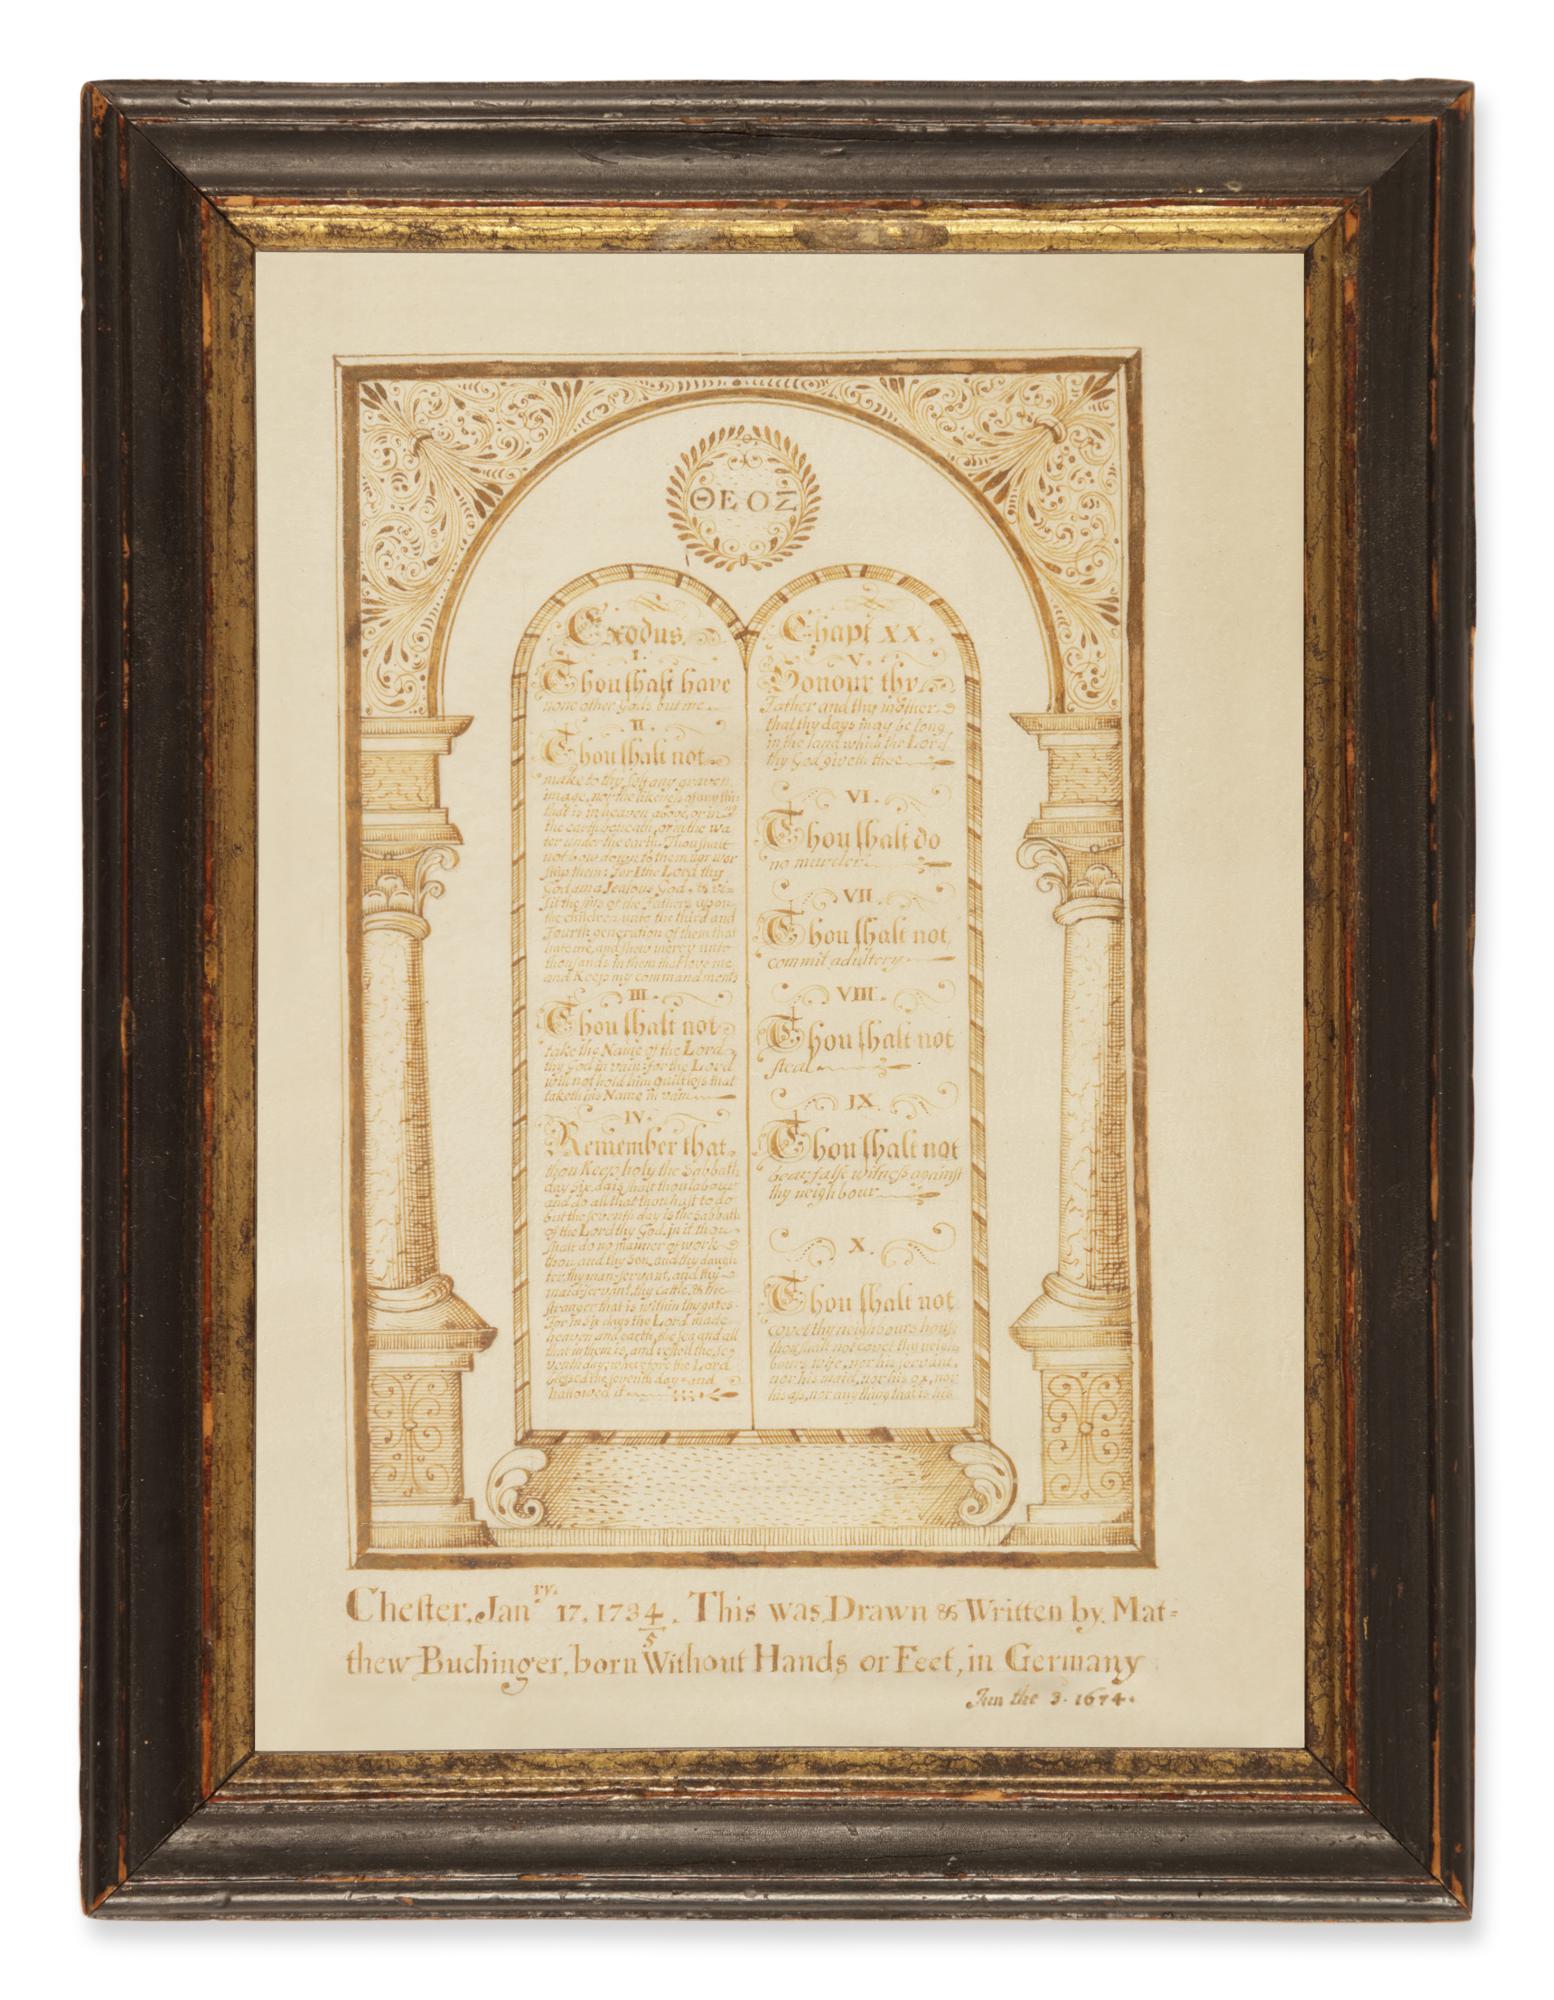 ΘΕΟΣ
Exodus.
I.
Thou shalt have
none other Gods but me
II.
Thou shalt not
make to thy self any graven
image, nor the likeness of any thin
that is in heaven above, or in
the earth beneath, or in the wa
ter under the earth. Thou shalt
not bow down to them nor wor
ship them: for I the Lord thy
God am a Jealous God, & vi=
sit the sins of the Fathers upon
the children unto the third and
Fourth generation of them that
hate me, and shew mercy unto
thousands in them that love me
and Keep my commandments
III.
Thou shalt not
take the Name of the Lord
thy God in vain: for the Lord
will not hold him Guiltless that
taketh his Name in vain
IV.
Remember that
thou Keep holy the Sabbath
day six dais shalt thou labour
and do all that thou hast to do
but the seventh day is the Sabbath
of the Lord thy God, in it thou
shalt do no manner of work
thou, and thy Son, and thy daugh
ter, thy man-servant, and thy
maid servant, thy cattle, & the
stranger that is within thy gates.
For in six days the Lord made
heaven and earth, the sea, and all
that in them is, and rested the se
venth day; wherefore the Lord
blessed the seventh day and
hallowed it
Chapt XX.
V.
Honour thy
Father and thy mother,
that thy days may be long
in the land which the Lord
thy God giveth thee
VI.
Thou shalt do
no murder
VII.
Thou shalt not
commit adultery
VIII.
Thou shalt not
steal
IX.
Thou shalt not
bear false witness against
thy neighbour
X.
Thou shalt not
covet thy neighbours house
thou shalt not covet thy neigh
bours wife, nor his servant,
nor his maid, nor his ox, nor
his ass, nor any thing that is his
Chester, Jan.ry. 17, 173 4/5. This was Drawn & Written by Mat=
thew Buchinger, born Without Hands or Feet, in Germany
Jun the 3. 1674.